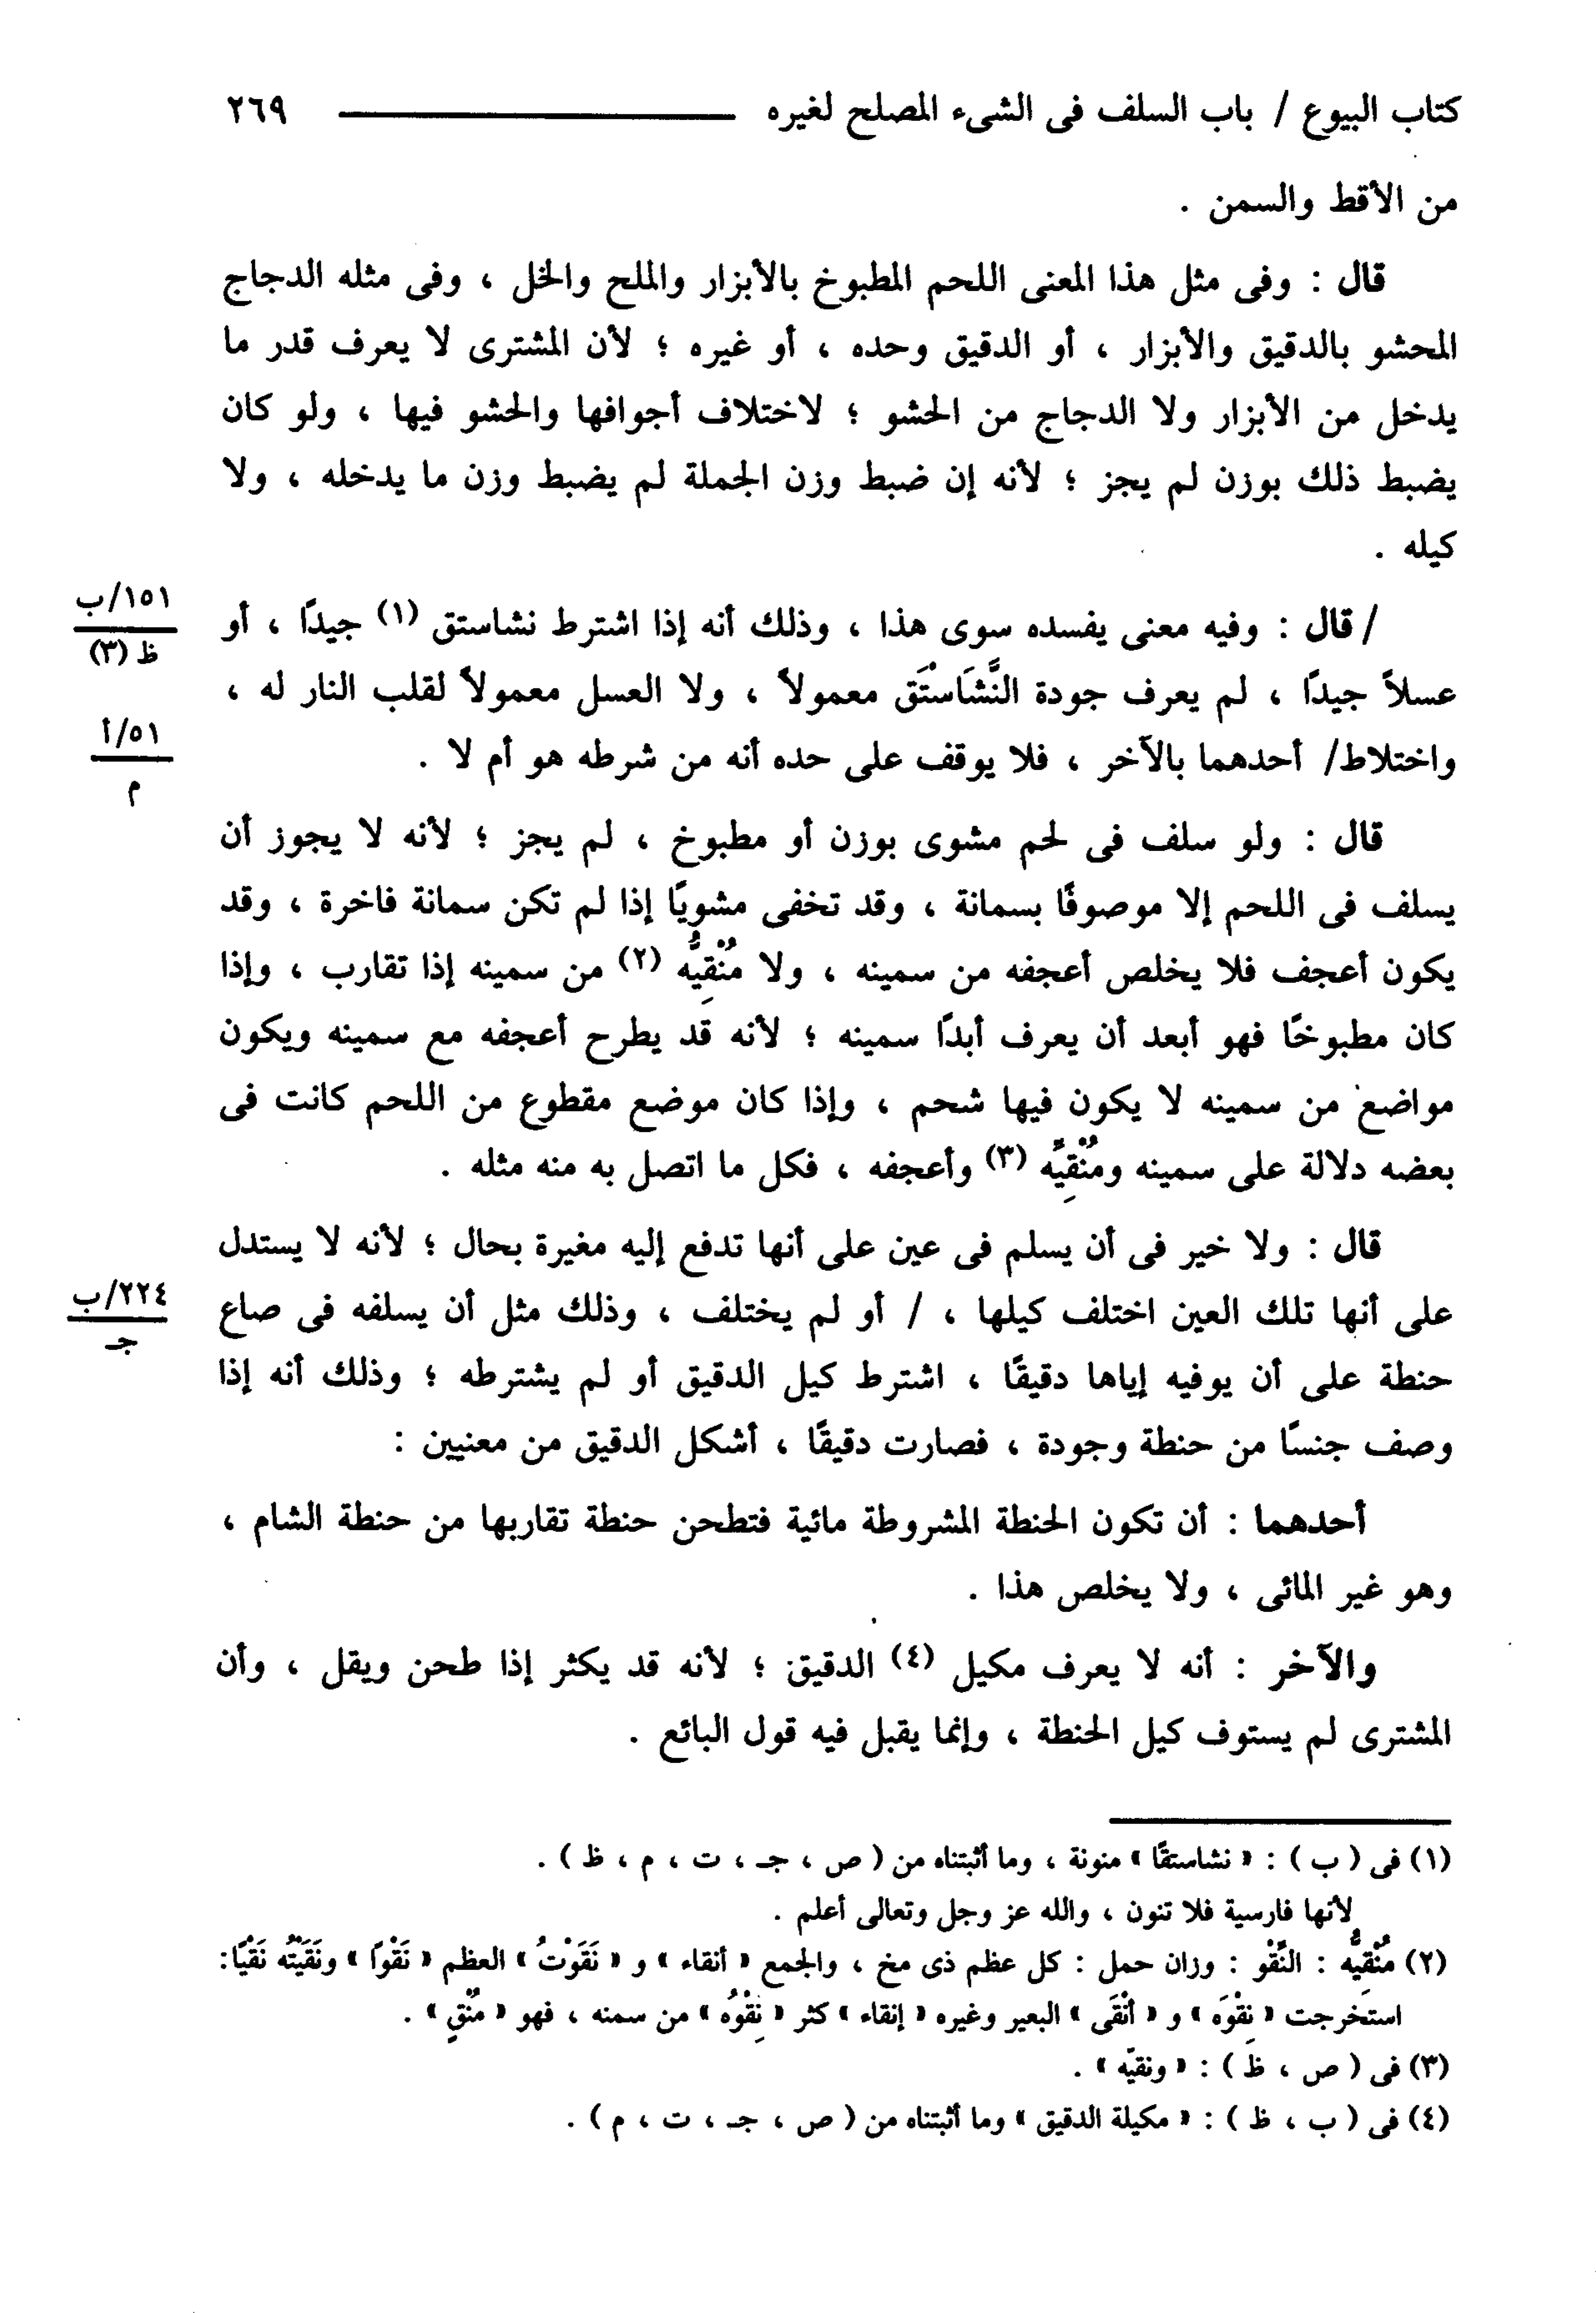 كتاب البيوع / باب السلف فى الشىء المصلح لغيره ٢٦٩
من الأقط والسمن .
قال : وفى مثل هذا المعنى اللحم المطبوخ بالأبزار والملح والخل ، وفى مثله الدجاج
المحشو بالدقيق والأبزار ، أو الدقيق وحده ، أو غيره ؛ لأن المشترى لا يعرف قدر ما
يدخل من الأبزار ولا الدجاج من الحشو ؛ لاختلاف أجوافها والحشو فيها ، ولو كان
يضبط ذلك بوزن لم يجز ؛ لأنه إن ضبط وزن الجملة لم يضبط وزن ما يدخله ، ولا
كيله .
١٥١/ب
ظ (٣)
/ قال : وفيه معنى يفسده سوى هذا ، وذلك أنه إذا اشترط نشاستق (١) جيدًا ، أو
عسلاً جيدًا ، لم يعرف جودة النَّشَاسْتَق معمولاً ، ولا العسل معمولاً لقلب النار له ،
٥١/أ
م
واختلاط/ أحدهما بالآخر ، فلا يوقف على حده أنه من شرطه هو أم لا .
قال : ولو سلف فى لحم مشوى بوزن أو مطبوخ ، لم يجز ؛ لأنه لا يجوز أن
يسلف فى اللحم إلا موصوفًا بسمانة ، وقد تخفى مشويًا إذا لم تكن سمانة فاخرة ، وقد
يكون أعجف فلا يخلص أعجفه من سمينه ، ولا مُنْقِيُّه (٢) من سمينه إذا تقارب ، وإذا
كان مطبوخًا فهو أبعد أن يعرف أبدًا سمينه ؛ لأنه قد يطرح أعجفه مع سمينه ويكون
مواضع من سمينه لا يكون فيها شحم ، وإذا كان موضع مقطوع من اللحم كانت فى
بعضه دلالة على سمينه ومُنْقِيِّه (٣) وأعجفه ، فكل ما اتصل به منه مثله .
قال : ولا خير فى أن يسلم فى عين على أنها تدفع إليه مغيرة بحال ؛ لأنه لا يستدل
٢٢٤/ب
جـ
على أنها تلك العين اختلف كيلها ، / أو لم يختلف ، وذلك مثل أن يسلفه فى صاع
حنطة على أن يوفيه إياها دقيقًا ، اشترط كيل الدقيق أو لم يشترطه ؛ وذلك أنه إذا
وصف جنسًا من حنطة وجودة ، فصارت دقيقًا ، أشكل الدقيق من معنيين :
أحدهما : أن تكون الحنطة المشروطة مائية فتطحن حنطة تقاربها من حنطة الشام ،
وهو غير المائى ، ولا يخلص هذا .
والآخر : أنه لا يعرف مكيل (٤) الدقيق ؛ لأنه قد يكثر إذا طحن ويقل ، وأن
المشترى لم يستوف كيل الحنطة ، وإنما يقبل فيه قول البائع .
(١) فى ( ب ) : « نشاستقًا » منونة ، وما أثبتناه من ( ص ، جـ ، ت ، م ، ظ ) .
لأنها فارسية فلا تنون ، والله عز وجل وتعالى أعلم .
(٢) مُنْقِيُّه : النِّقْو : وزان حمل : كل عظم ذى مخ ، والجمع « أنقاء » و « نَقَوْتُ » العظم « نَقْوًا » ونَقَيْتُه نَقْيًا :
استخرجت « نِقْوَه » و « أنْقَى » البعير وغيره « إنقاء » كثر « نِقْوُه » من سمنه ، فهو « مُنْقٍ » .
(٣) فى ( ص ، ظ ) : « ونقيّه » .
(٤) فى ( ب ، ظ ) : « مكيلة الدقيق » وما أثبتناه من ( ص ، جـ ، ت ، م ) .